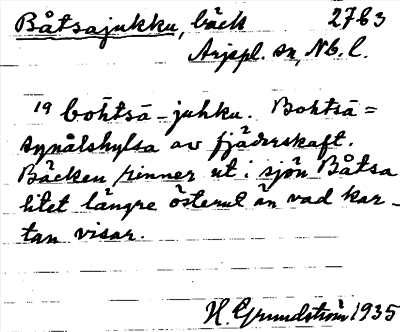 Båtsajukku, bäck 2763
Arjepl. sn, Nb. l.
19 bòhtsā-juhku. Bohtsā =
synålshylsa av fjäderskaft.
Bäcken rinner ut i sjön Båtsa
litet längre österut än vad kar-
tan visar.
H. Grundström 1935